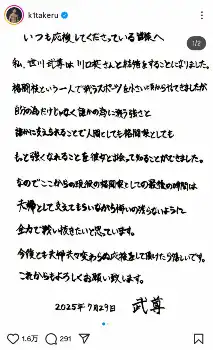 k1takeru
1/2
いつも応援してくださっている皆様へ
私、世川武尊は川口葵さんと結婚をすることになりました。
格闘技という一人で戦うスポーツを小さい頃からやってきましたが
自分の為だけじゃなく誰かの為に戦う強さと
誰かに支えられることで人間としても格闘家としても
もっと強くなれることを彼女と出会って知ることができました。
なのでここからの現役の格闘家としての最後の時間は
夫婦として支えてもらいながら悔いの残らないように
全力で戦い抜きたいと思っています。
今後とも夫婦共々変わらぬ応援をして頂けたら嬉しいです。
これからもよろしくお願い致します。
2025年7月29日 武尊
1.6万
291